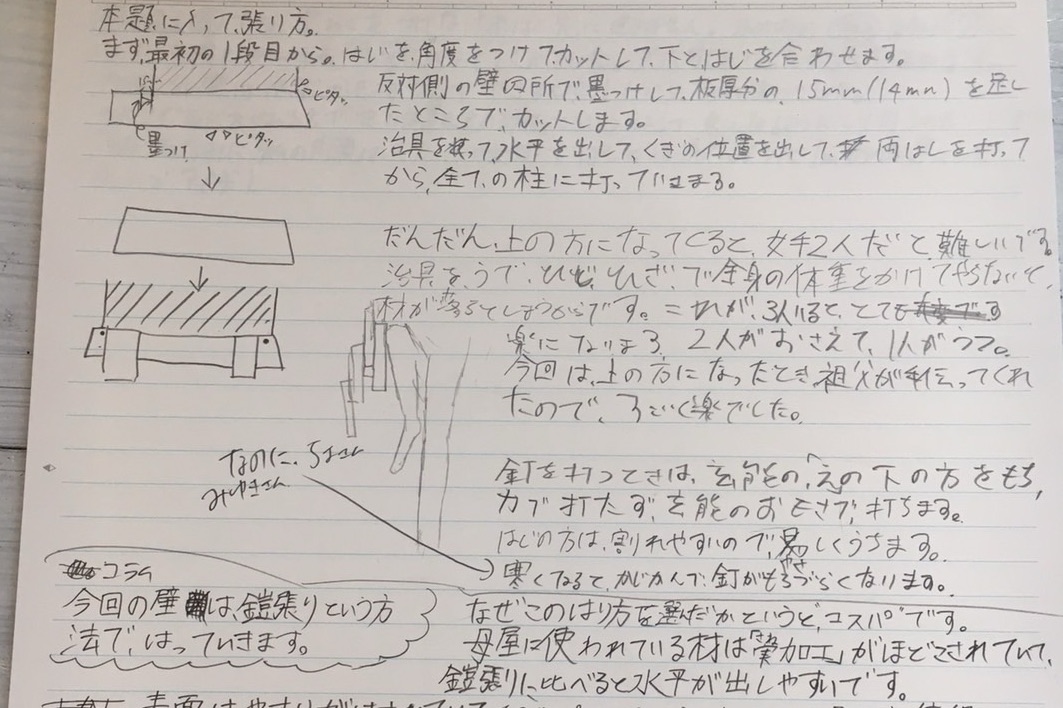 本題に入って、張り方。
まず、最初の1段目から。はじを、角度をつけてカットして、下とはじを合わせます。
反対側の壁の所で、墨つけして、板厚分の、15mm(14mm)を足し
たところで、カットします。
ピタッ
ピタッ
墨つけ
治具を使って、水平を出して、くぎの位置を出して、両はしを打って
から、全ての柱に打っていきます。
だんだん、上の方になってくると、女手2人だと、難しいです。
治具を、うで、ひじ、ひざ、で全身の体重をかけてやらないと、
材が落ちてしまうからです。これが、3人いると、とても
楽になります、2人がおさえて、1人がうつ。
今回は、上の方になったとき、祖父が手伝ってくれ
たので、すごく楽でした。
なのに、ちよさん
みゆきさん
釘を打つときは、玄能の、「え」の下の方をもち、
力で打たず、玄能のおもさで、打ちます。
はじの方は、割れやすいので、易しくうちます。
やさ
寒くなると、かじかんで、釘がもちづらくなります。
コラム
今回の壁は、鎧張りという方
法で、はっていきます。
なぜこのはり方を選んだかというと、コスパです。
母屋に使われている材は「加工」がほどこされていて、
鎧張りに比べると水平が出しやすいです。
表面はやすりが